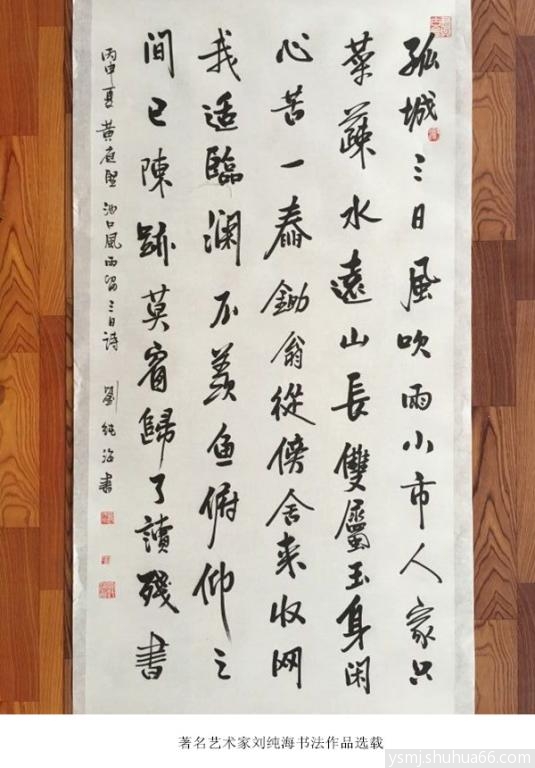 孤城三日風吹雨小市人家只
菜蔬水遠山長雙屬玉身闲
心苦一舂鋤翁從傍舍来收网
我适臨渊不羡鱼俯仰之
間已陳跡莫窗歸了讀殘書
丙申夏黄庭堅池口風雨留三日詩 劉純海書
著名艺术家刘纯海书法作品选载
ysmj.shuhua66.com